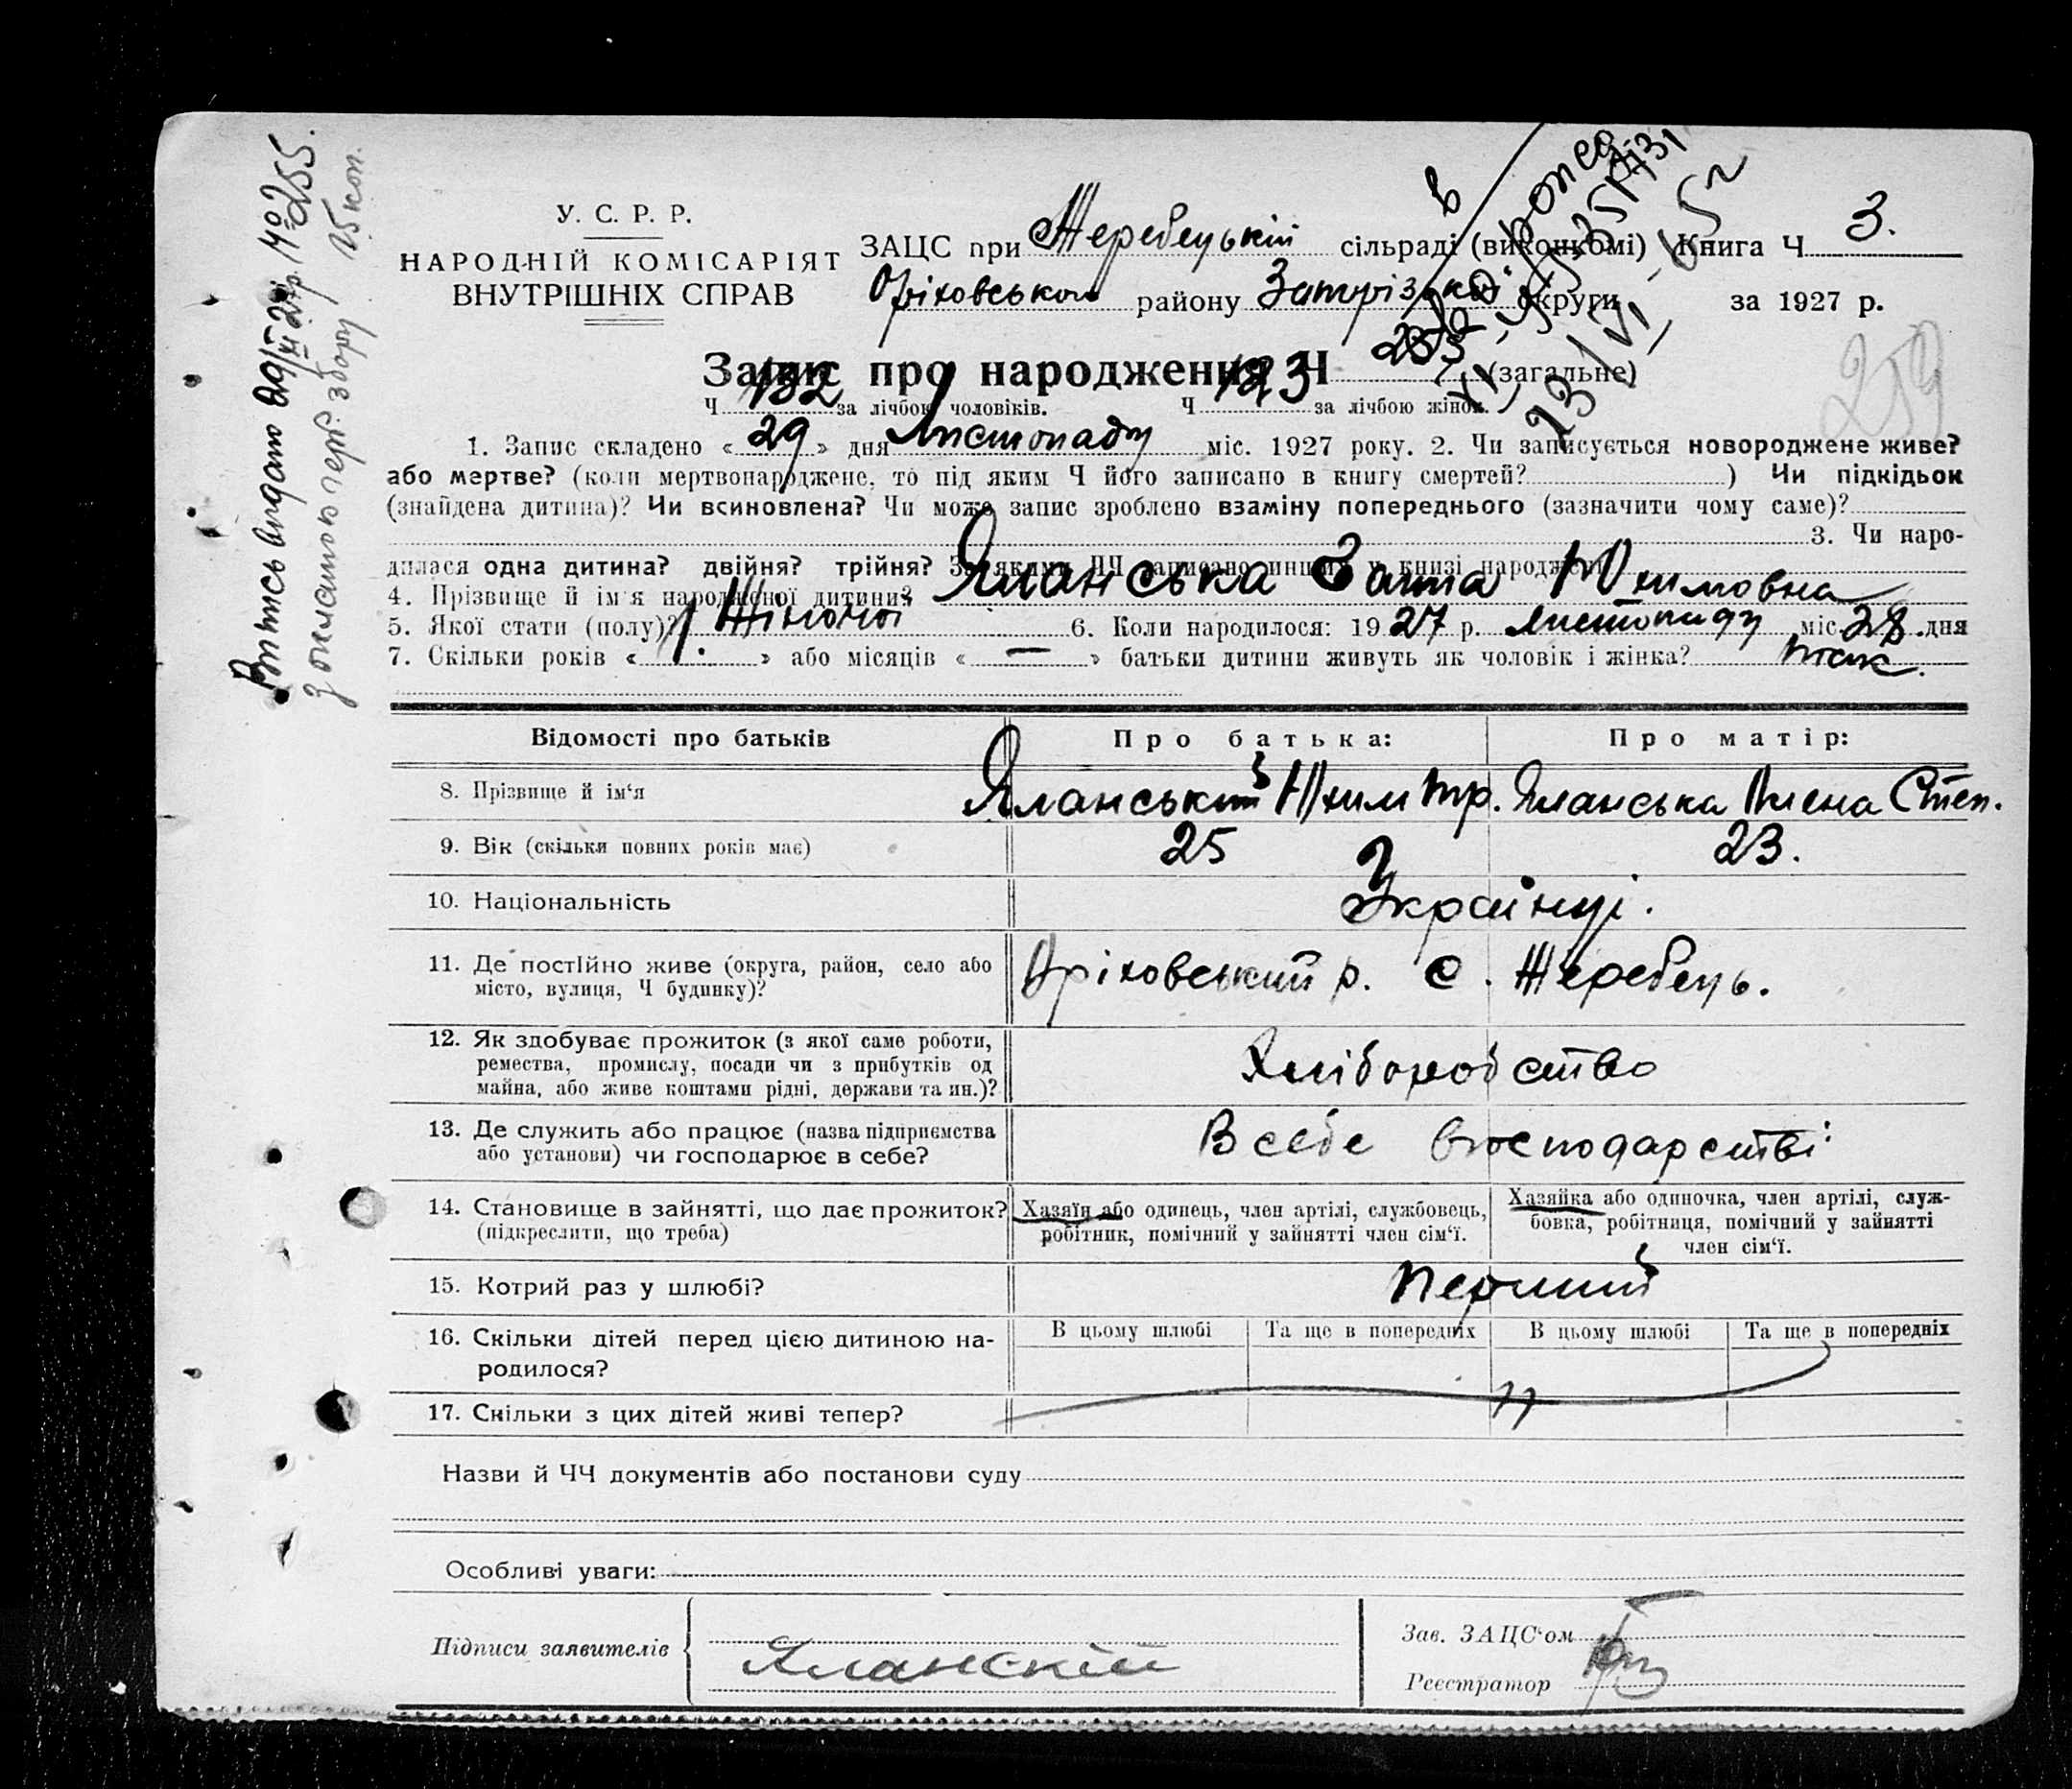 У. С. Р. Р.
НАРОДНІЙ КОМІСАРІЯТ
ВНУТРІШНІХ СПРАВ
ЗАЦС при Жеребецькій сільраді (виконкомі) Книга Ч 3.
Оріховського району Запорізької округи за 1927 р.
259
Запис про народження Ч 255 (загальне)
Ч 132 за лічбою чоловіків. Ч 123 за лічбою жінок.
1. Запис складено «29» дня Листопаду міс. 1927 року. 2. Чи записується новороджене живе?
або мертве? (коли мертвонароджене, то під яким Ч його записано в книгу смертей? ) Чи підкідьок
(знайдена дитина)? Чи всиновлена? Чи може запис зроблено взаміну попереднього (зазначити чому саме)?
3. Чи наро-
дилася одна дитина? двійня? трійня? За якими ЧЧ записано инших у книзі народжень
4. Прізвище й ім'я народженої дитини? Яланська Юхимовна
5. Якої стати (полу)? Жіночої 6. Коли народилося: 1927 р. Листопаду міс. 28 дня
7. Скільки років «1.» або місяців «—» батьки дитини живуть як чоловік і жінка? так.
Відомості про батьків Про батька: Про матір:
8. Прізвище й ім'я Яланський Юхим Тр. Яланська Олена Степ.
9. Вік (скільки повних років має) 25 23.
10. Національність Українці.
11. Де постійно живе (округа, район, село або
місто, вулиця, Ч будинку)? Оріховський р. с. Жеребець.
12. Як здобуває прожиток (з якої саме роботи,
ремества, промислу, посади чи з прибутків од
майна, або живе коштами рідні, держави та ин.)? Хліборобство
13. Де служить або працює (назва підприємства
або установи) чи господарює в себе? В себе в господарстві
14. Становище в зайнятті, що дає прожиток?
(підкреслити, що треба)
Хазяїн або одинець, член артілі, службовець,
робітник, помічний у зайнятті член сім'ї.
Хазяйка або одиночка, член артілі, служ-
бовка, робітниця, помічний у зайнятті
член сім'ї.
15. Котрий раз у шлюбі? перший
16. Скільки дітей перед цією дитиною на-
родилося?
В цьому шлюбі Та ще в попередніх В цьому шлюбі Та ще в попередніх
17. Скільки з цих дітей живі тепер?
Назви й ЧЧ документів або постанови суду
Особливі уваги:
Підписи заявителів Яланскій
Зав. ЗАЦС'ом
Реєстратор